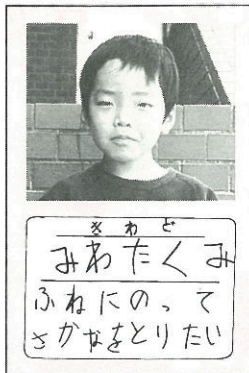 きわど
みわたくみ
ふねにのって
さかなをとりたい